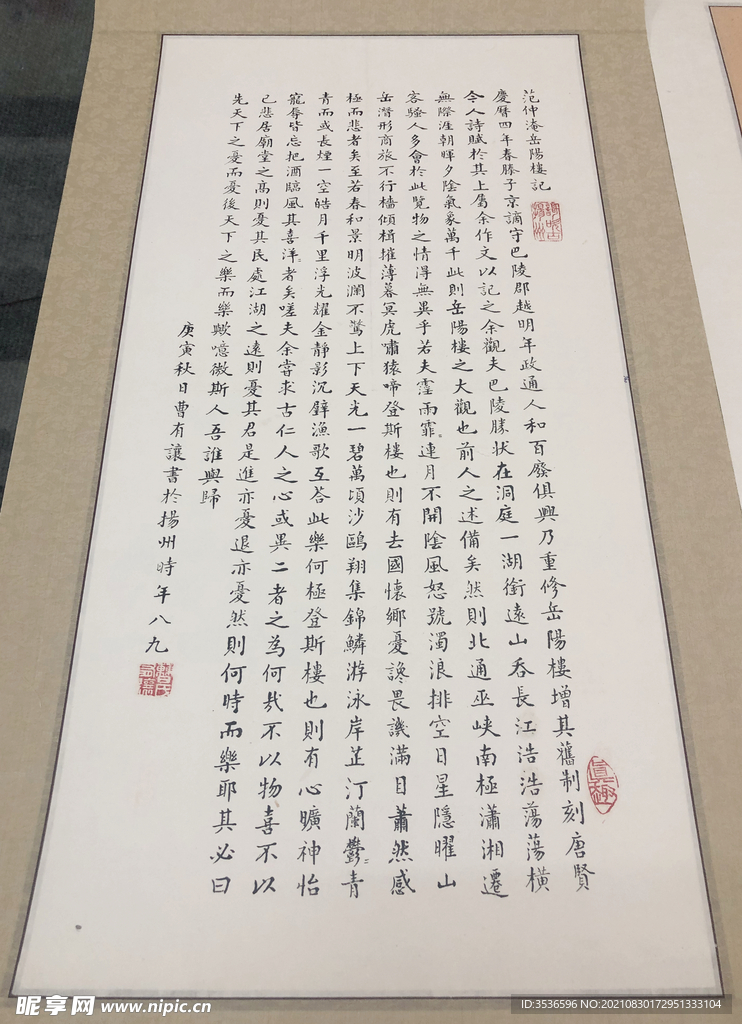 范仲淹岳陽樓記
慶曆四年春滕子京謫守巴陵郡越明年政通人和百廢俱興乃重修岳陽樓增其舊制刻唐賢
今人詩賦於其上屬余作文以記之余觀夫巴陵勝狀在洞庭一湖銜遠山吞長江浩浩蕩蕩橫
無際涯朝暉夕陰氣象萬千此則岳陽樓之大觀也前人之述備矣然則北通巫峽南極瀟湘遷
客騷人多會於此覽物之情得無異乎若夫霪雨霏〻連月不開陰風怒號濁浪排空日星隱曜山
岳潛形商旅不行檣傾楫摧薄暮冥虎嘯猿啼登斯樓也則有去國懷鄉憂讒畏譏滿目蕭然感
極而悲者矣至若春和景明波瀾不驚上下天光一碧萬頃沙鷗翔集錦鱗游泳岸芷汀蘭鬱〻青
青而或長煙一空皓月千里浮光耀金靜影沉璧漁歌互荅此樂何極登斯樓也則有心曠神怡
寵辱皆忘把酒臨風其喜洋者矣嗟夫余嘗求古仁人之心或異二者之為何哉不以物喜不以
己悲居廟堂之高則憂其民處江湖之遠則憂其君是進亦憂退亦憂然則何時而樂耶其必曰
先天下之憂而憂後天下之樂而樂歟噫微斯人吾誰與歸
庚寅秋日曹有讓書於揚州時年八九
真趣
昵享网 www.nipic.cn
ID:3536596 NO:20210830172951333104